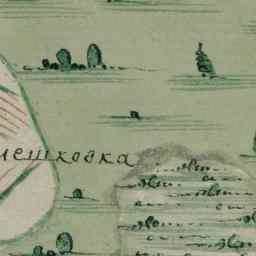 мешковка